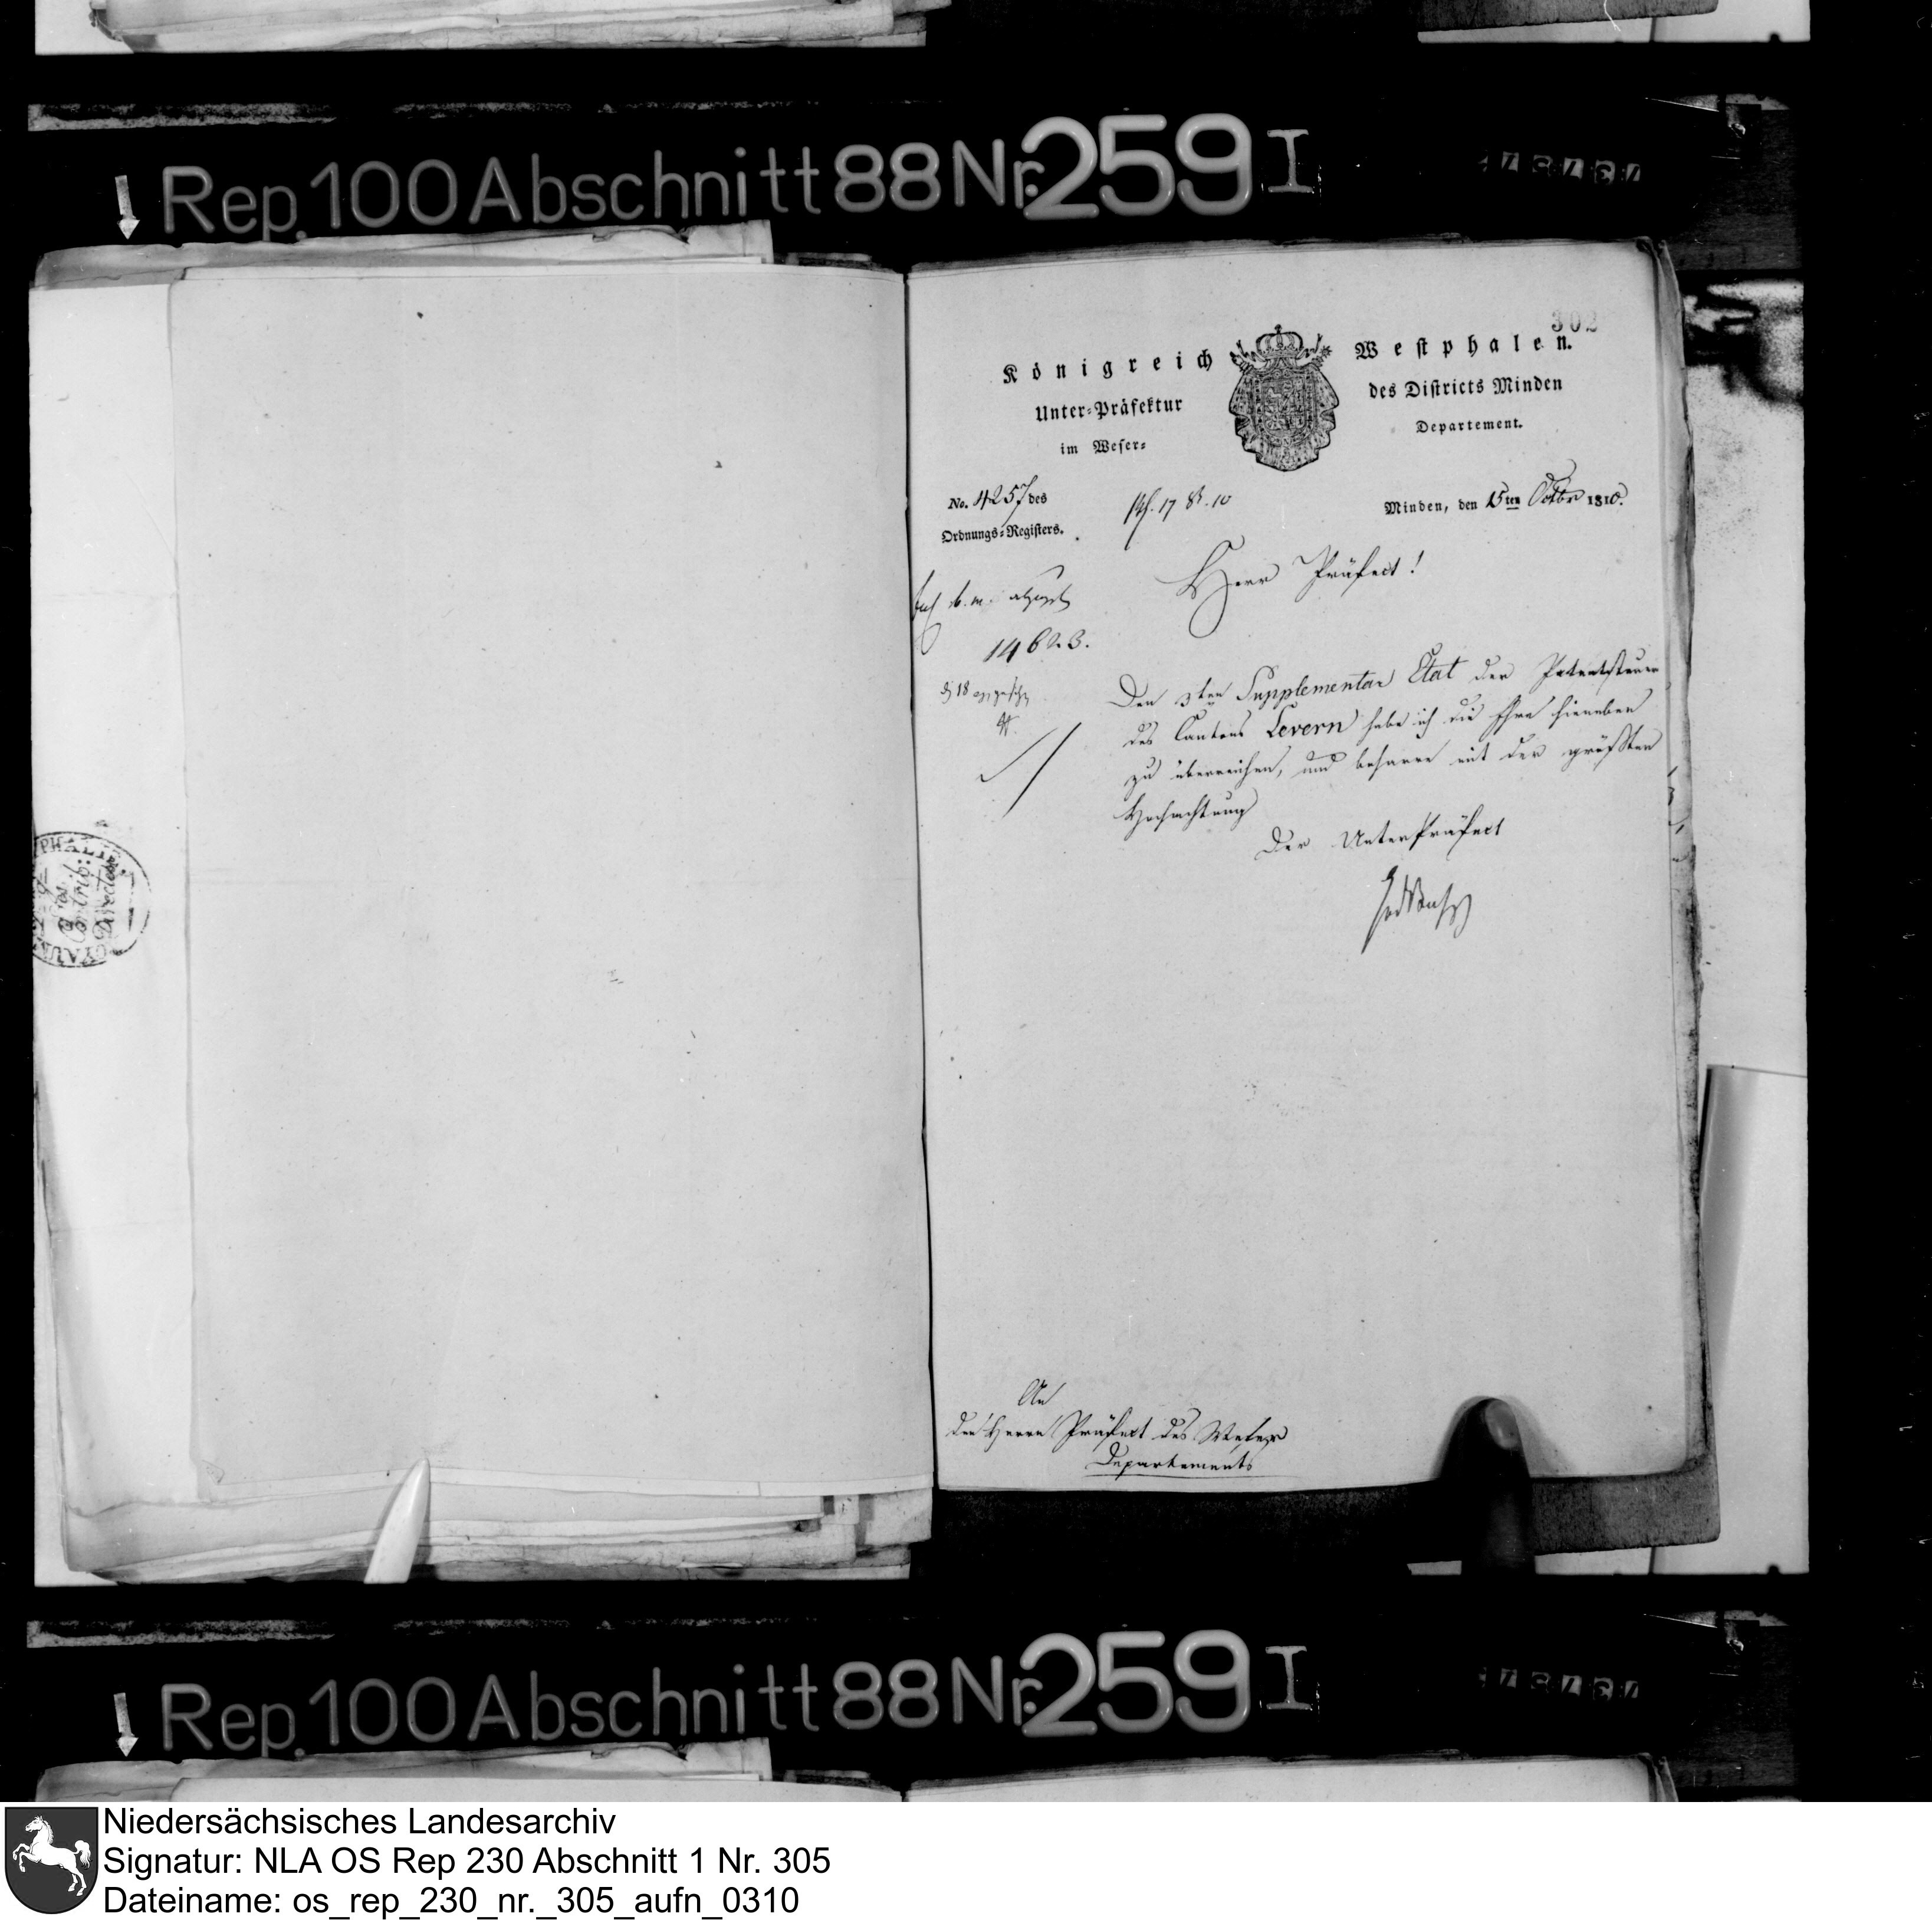 Rep. 100 Abschnitt 88 Nr. 259 I
302
Königreich Westphalen.
Unter-Präfektur des Districts Minden
im Weser- Departement.
No. 4257 des
Ordnungs-Registers.
17 8.10
Minden, den 15ten Octbr 1810.
14623.
Herr Präfect!
Den 3ten Supplementar Etat der Patentsteuer
des Cantons Levern habe ich die Ehre hieneben
zu überreichen, und beharre mit der größten
Hochachtung
Der UnterPräfect
An
den Herrn Präfect des Weser
Departements
Contrib:
Directer
Rep. 100 Abschnitt 88 Nr. 259 I
Niedersächsisches Landesarchiv
Signatur: NLA OS Rep 230 Abschnitt 1 Nr. 305
Dateiname: os_rep_230_nr._305_aufn_0310